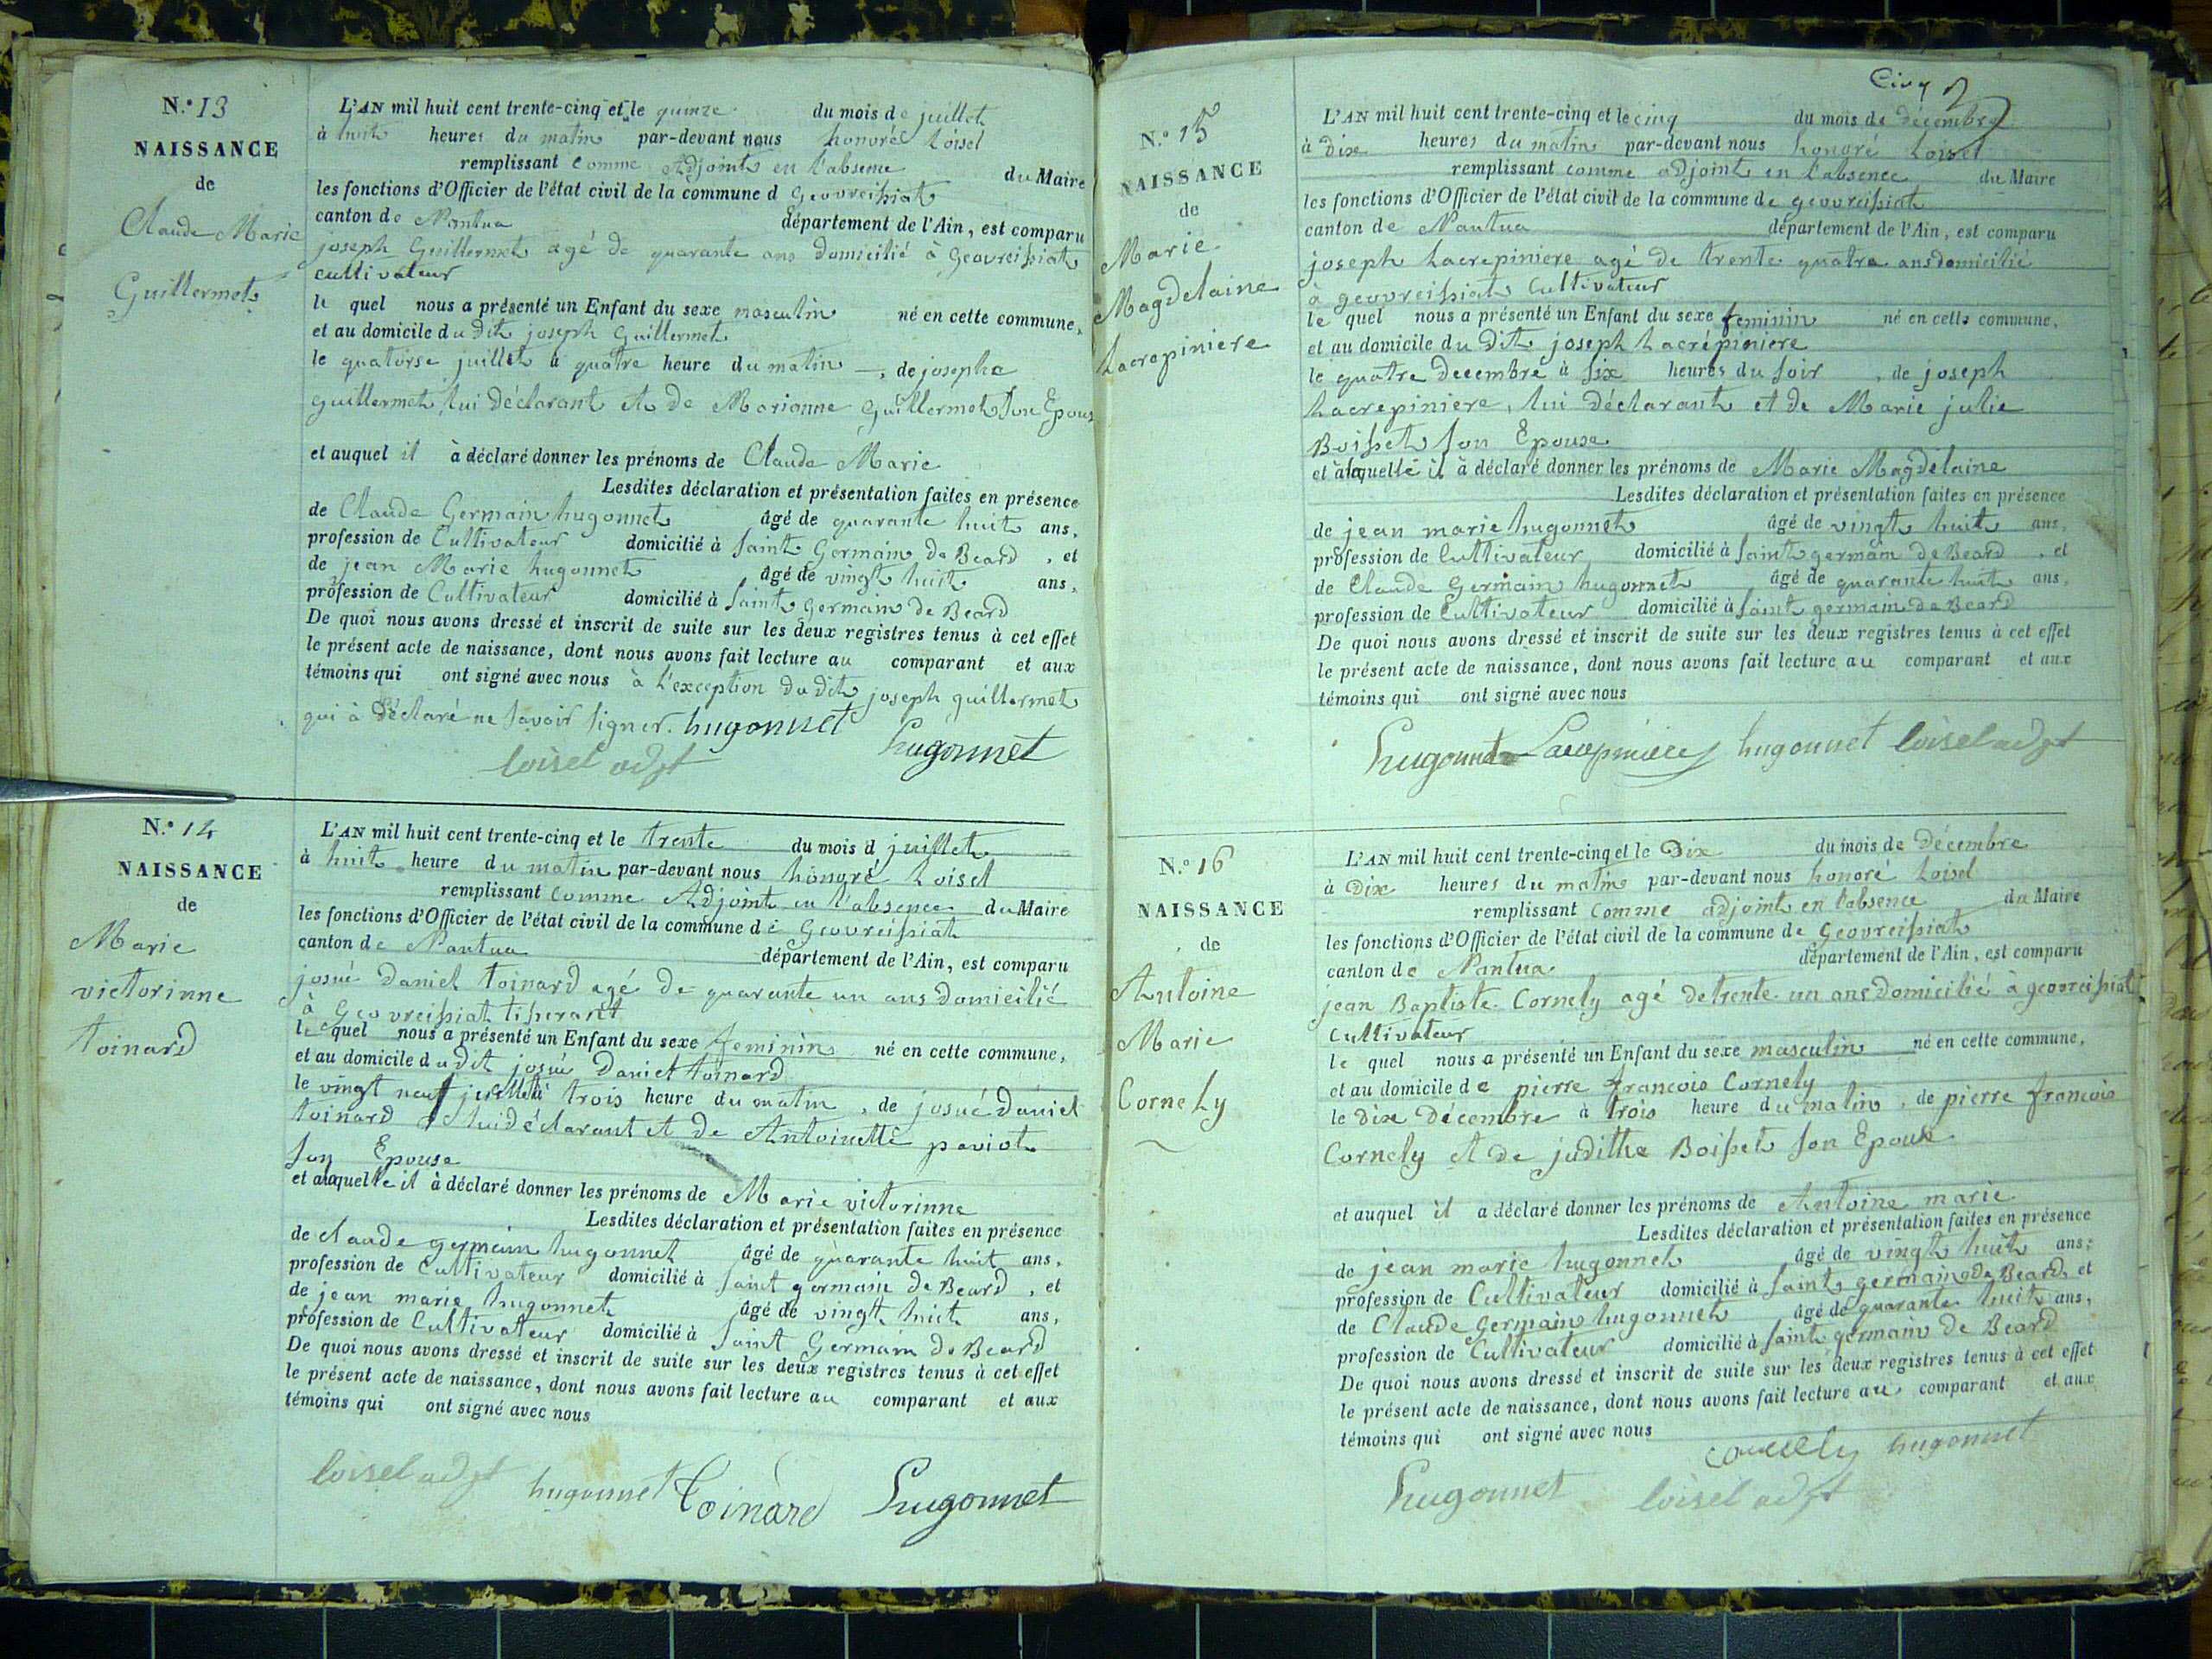 N.° 13
NAISSANCE
de
Claude Marie
Guillermet
L'AN mil huit cent trente-cinq et le quinze du mois de juillet
à huit heures du matin par-devant nous honoré Loisel
remplissant comme Adjoint en l'absence du Maire
les fonctions d'Officier de l'état civil de la commune d Geovreissiat
canton de Nantua département de l'Ain, est comparu
joseph Guillermet agé de quarante ans domicilié à Geovreissiat
cultivateur
le quel nous a présenté un Enfant du sexe masculin né en cette commune,
et au domicile du dit joseph Guillermet
le quatorse juillet à quatre heure du matin, de josephe
guillermet, lui déclarant et de Marianne Guillermet son Epous
et auquel il à déclaré donner les prénoms de Claude Marie
Lesdites déclaration et présentation faites en présence
de Claude Germain hugonnet âgé de quarante huit ans,
profession de Cultivateur domicilié à saint Germain de Beard, et
de jean Marie hugonnet âgé de vingt huit ans,
profession de Cultivateur domicilié à saint Germain de Beard
De quoi nous avons dressé et inscrit de suite sur les deux registres tenus à cet effet
le présent acte de naissance, dont nous avons fait lecture au comparant et aux
témoins qui ont signé avec nous à l'exception du dit joseph guillermet
qui à déclaré ne savoir signer. hugonnet
loisel adjt hugonnet
N.° 14
NAISSANCE
de
Marie
victorinne
toinard
L'AN mil huit cent trente-cinq et le trente du mois d juillet
à huit heure du matin par-devant nous honoré Loisel
remplissant comme Adjoint en l'absence du Maire
les fonctions d'Officier de l'état civil de la commune de Geovreissiat
canton de Nantua département de l'Ain, est comparu
josué Daniel toinard agé de quarante un ans domicilié
à Geovreissiat tisserant
le quel nous a présenté un Enfant du sexe feminin né en cette commune,
et au domicile du dit josué Daniel toinard
le vingt neuf juillet à trois heure du matin, de josué Daniel
toinard lui déclarant et de Antoinette paviot
son Epouse
et a laquelle il à déclaré donner les prénoms de Marie victorinne
Lesdites déclaration et présentation faites en présence
de claude germain hugonnet âgé de quarante huit ans,
profession de Cultivateur domicilié à saint germain de Beard, et
de jean marie hugonnet âgé de vingt huit ans,
profession de Cultivateur domicilié à saint Germain de Beard
De quoi nous avons dressé et inscrit de suite sur les deux registres tenus à cet effet
le présent acte de naissance, dont nous avons fait lecture au comparant et aux
témoins qui ont signé avec nous
loisel adjt hugonnet Toinard hugonnet
Cinq
N.° 15
NAISSANCE
de
Marie
Magdelaine
Lacrepiniere
L'AN mil huit cent trente-cinq et le cinq du mois de décembre
à dix heures du matin par-devant nous honoré Loisel
remplissant comme adjoint en l'absence du Maire
les fonctions d'Officier de l'état civil de la commune de geovreissiat
canton de Nantua département de l'Ain, est comparu
joseph Lacrepiniere agé de trente quatre ans domicilié
à geovreissiat Cultivateur
le quel nous a présenté un Enfant du sexe feminin né en cette commune,
et au domicile du dit joseph Lacrépiniere
le quatre decembre à six heures du soir, de joseph
Lacrepiniere, lui déclarant et de Marie julie
Boisset son Epouse
et à laquelle il à déclaré donner les prénoms de Marie Magdelaine
Lesdites déclaration et présentation faites en présence
de jean marie hugonnet âgé de vingt huit ans,
profession de Cultivateur domicilié à saint germain de Beard, et
de Claude Germain hugonnet âgé de quarante huit ans,
profession de Cultivateur domicilié à saint germain de Beard
De quoi nous avons dressé et inscrit de suite sur les deux registres tenus à cet effet
le présent acte de naissance, dont nous avons fait lecture au comparant et aux
témoins qui ont signé avec nous
hugonnet Lacrepiniere hugonnet loisel adjt
N.° 16
NAISSANCE
de
Antoine
Marie
Cornely
L'AN mil huit cent trente-cinq et le Dix du mois de décembre
à Dix heures du matin par-devant nous honoré Loisel
remplissant comme adjoint en l'absence du Maire
les fonctions d'Officier de l'état civil de la commune de Geovreissiat
canton de Nantua département de l'Ain, est comparu
jean Baptiste Cornely agé de trente un ans Domicilié à geovreissiat
Cultivateur
le quel nous a présenté un Enfant du sexe masculin né en cette commune,
et au domicile de pierre francois Cornely
le dix decembre à trois heure du matin, de pierre francois
Cornely et de judithe Boisset son Epouse
et auquel il a déclaré donner les prénoms de Antoine marie
Lesdites déclaration et présentation faites en présence
de jean marie hugonnet âgé de vingt huit ans,
profession de Cultivateur domicilié à saint germain de Beard, et
de Claude Germain hugonnet âgé de quarante huit ans,
profession de Cultivateur domicilié à saint germain de Beard
De quoi nous avons dressé et inscrit de suite sur les deux registres tenus à cet effet
le présent acte de naissance, dont nous avons fait lecture au comparant et aux
témoins qui ont signé avec nous
cornely hugonnet
hugonnet loisel adjt